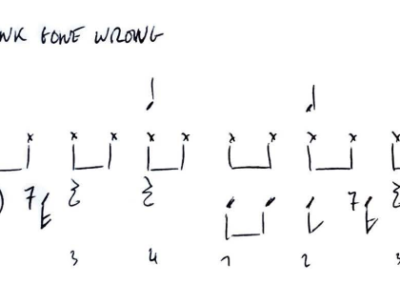 NK GONE WRONG
3 4 1 2 3